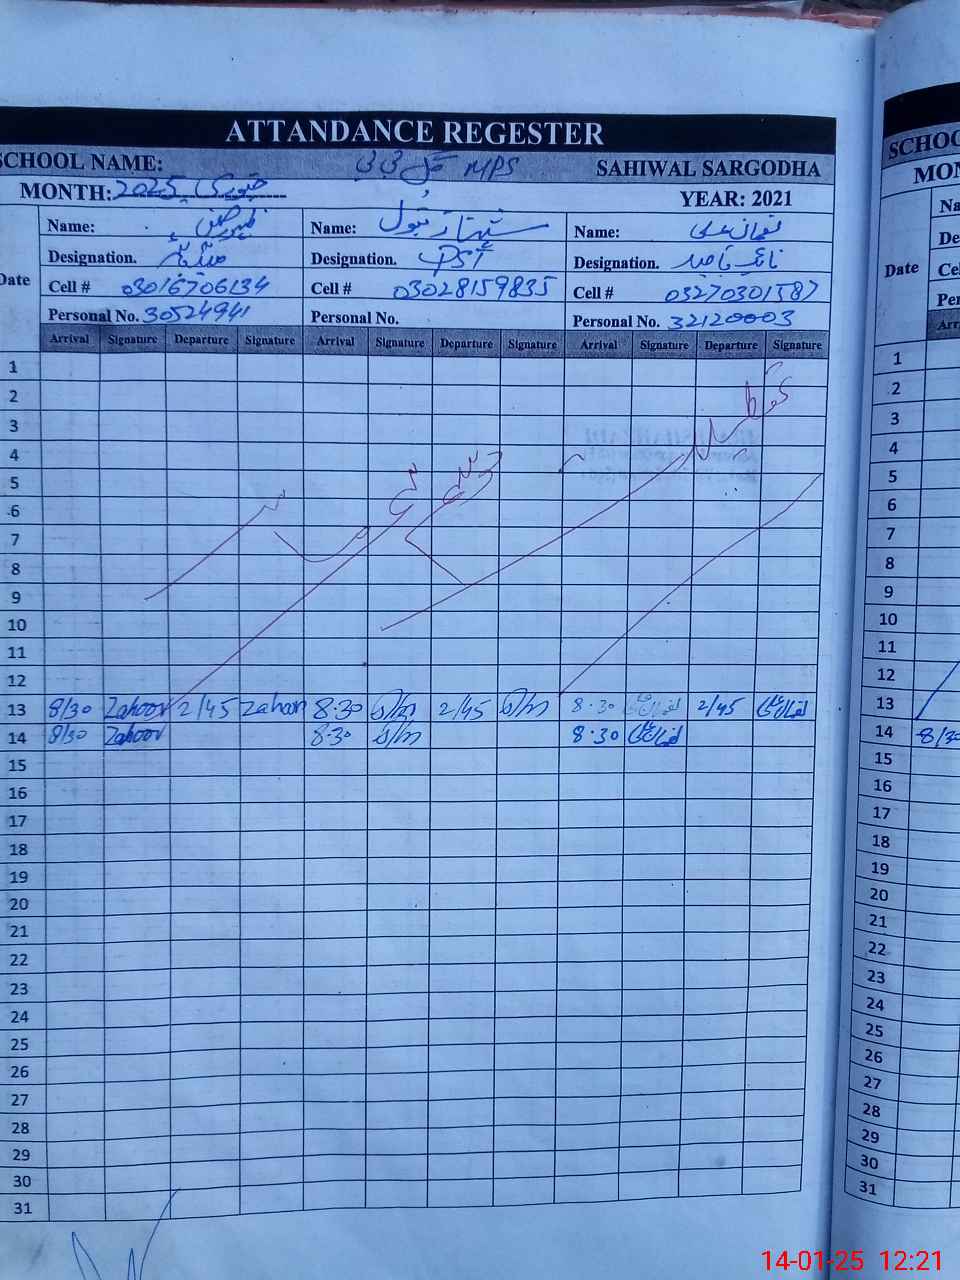 ATTANDANCE REGESTER
SCHOOL NAME: MPS SAHIWAL SARGODHA
MONTH: جنوری 2025 YEAR: 2021
Name: Name: Name:
Designation. Designation. PST Designation.
Cell # 03016706134 Cell # 03028159835 Cell # 03270301587
Personal No. 30524941 Personal No. Personal No. 32120003
Date Arrival Signature Departure Signature Arrival Signature Departure Signature Arrival Signature Departure Signature
1
2
3
4
5
6
7
8
9
10
11
12
13 8/30 Zahoor 2/45 Zahoor 8.30 2/45 8.30 2/45
14 8/30 Zahoor 8.30 8.30
15
16
17
18
19
20
21
22
23
24
25
26
27
28
29
30
31
SCHOO
MON
Na
De
Date Ce
Per
Arri
1
2
3
4
5
6
7
8
9
10
11
12
13
14 8/30
15
16
17
18
19
20
21
22
23
24
25
26
27
28
29
30
31
14-01-25 12:21